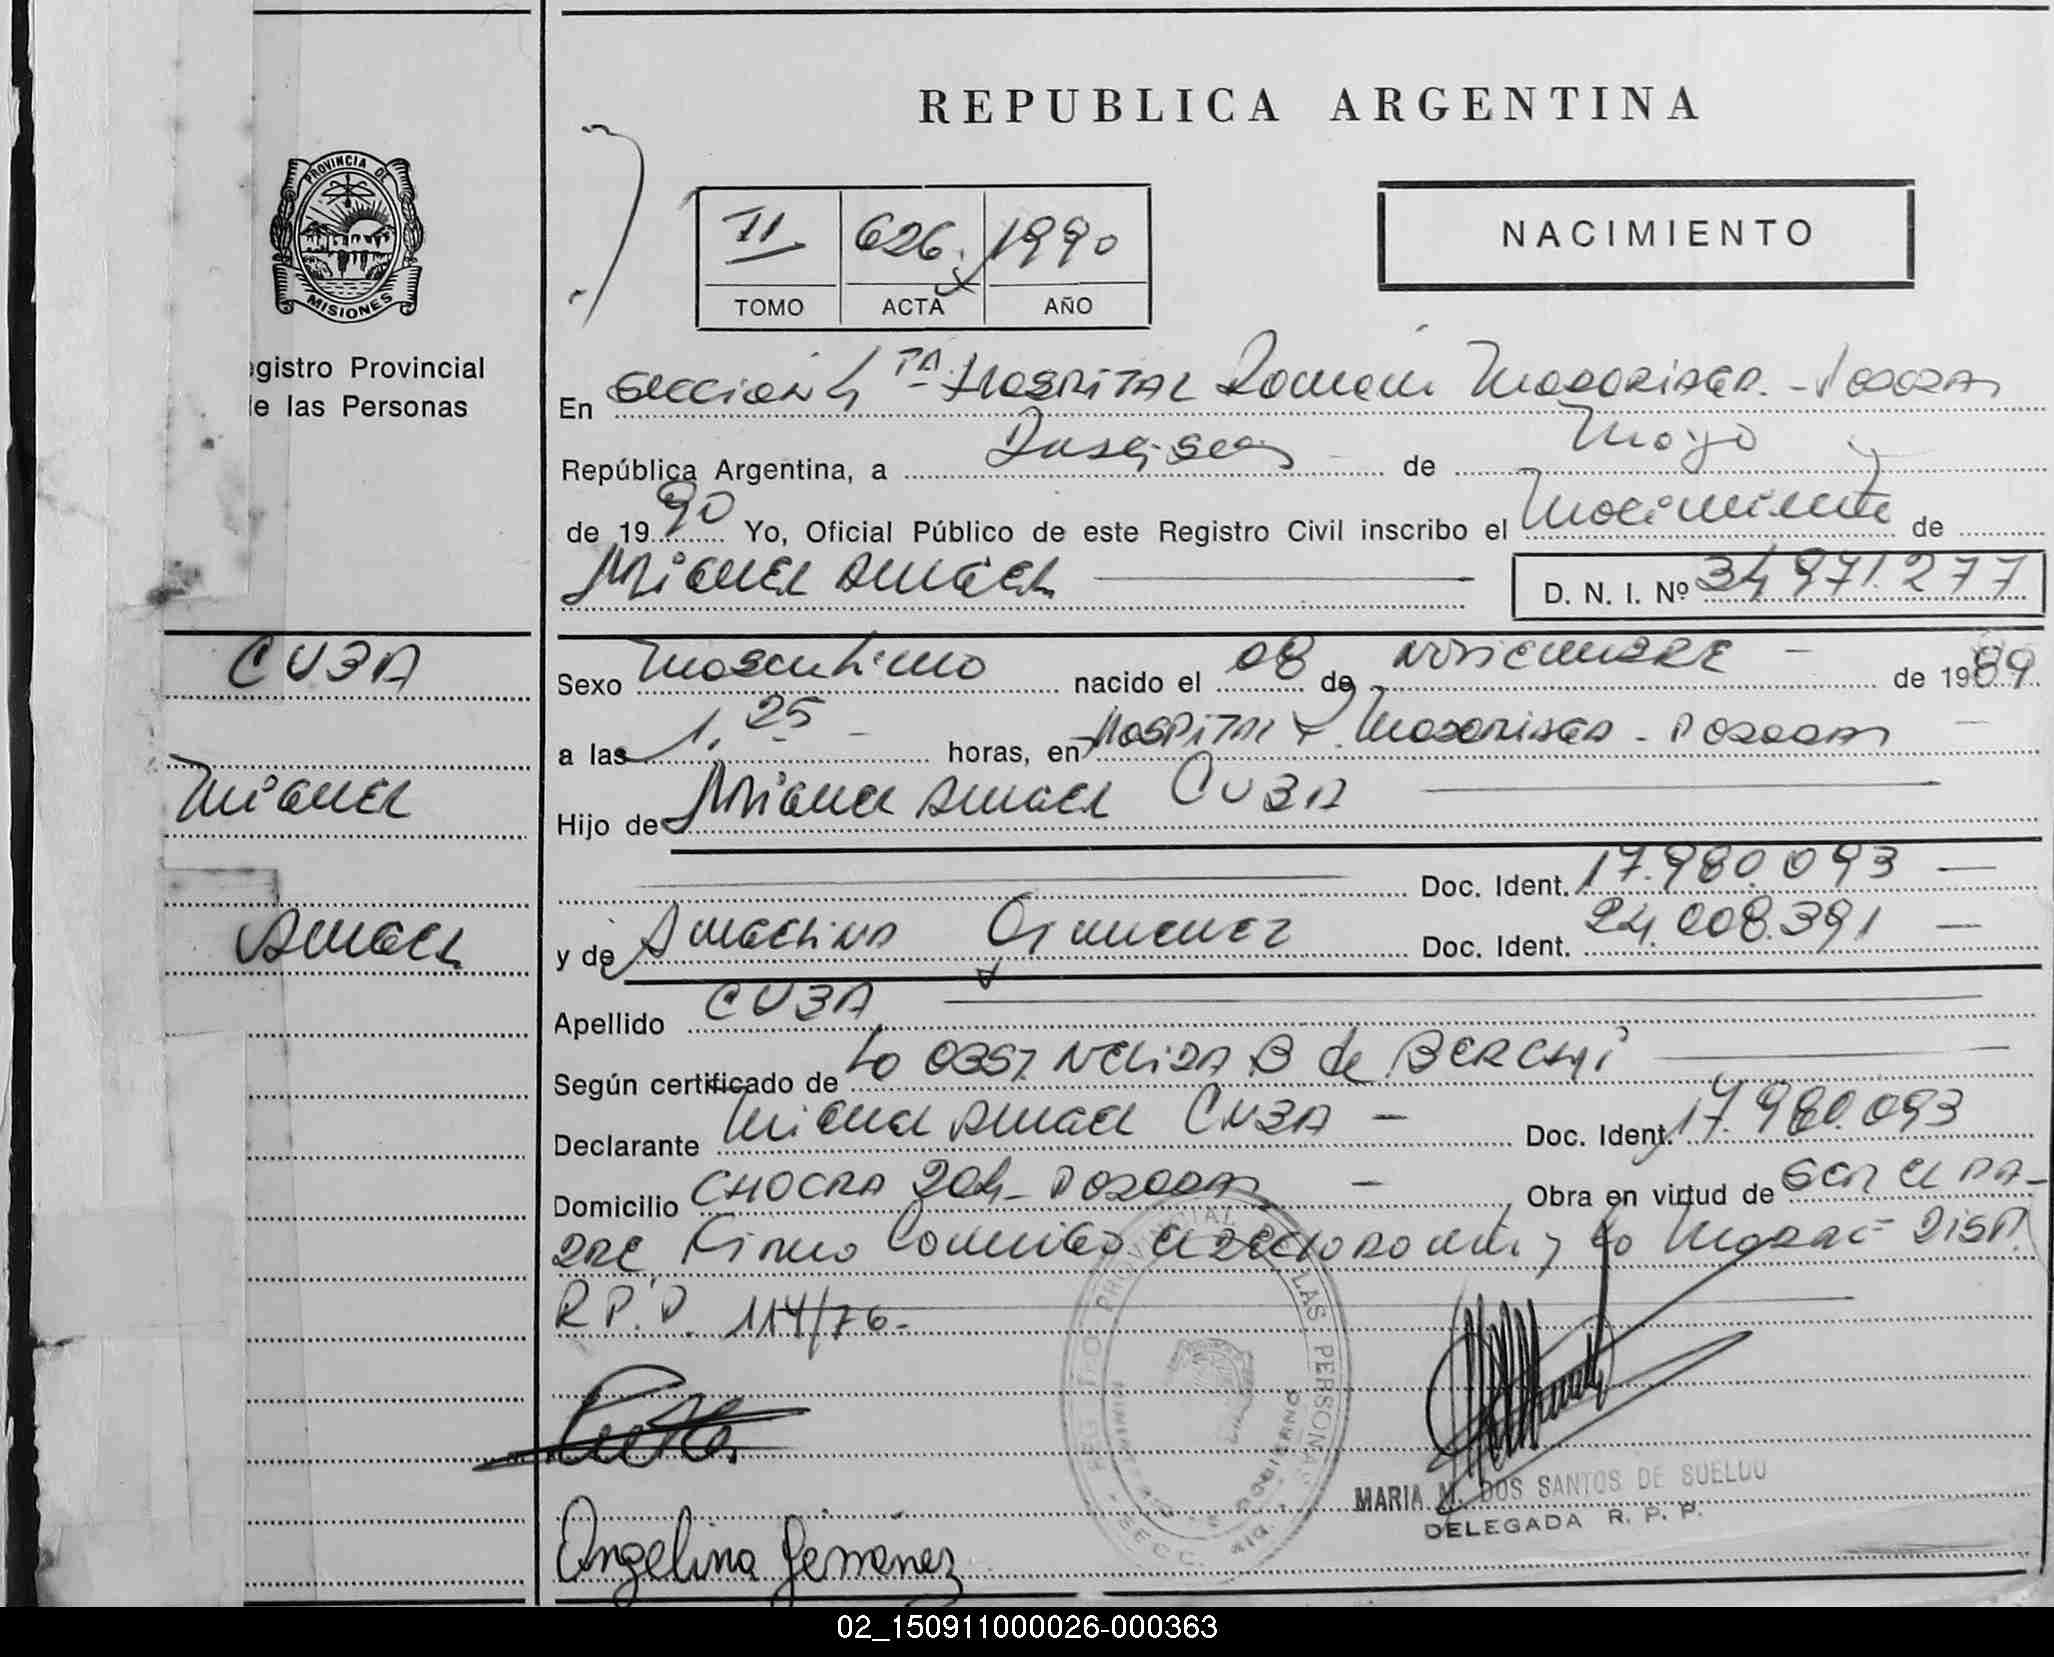 REPUBLICA ARGENTINA
PROVINCIA DE MISIONES
II 626 1990
TOMO ACTA AÑO
NACIMIENTO
egistro Provincial
e las Personas
En SECCION 4 TA HOSPITAL Ramon Madariaga - Posadas
República Argentina, a Dieciseis de Mayo
de 1990 Yo, Oficial Público de este Registro Civil inscribo el Nacimiento de
MIGUEL ANGEL D. N. I. Nº 34.971.277
CUBA
Sexo Masculino nacido el 08 de NOVIEMBRE - de 1989
a las 1.25 - horas, en HOSPITAL R. Madariaga - Posadas -
MIGUEL
Hijo de MIGUEL ANGEL CUBA
Doc. Ident. 17.980.093 -
ANGEL
y de ANGELINA GIMENEZ Doc. Ident. 24.008.391 -
Apellido CUBA
Según certificado de la OBST. NELIDA B de
Declarante MIGUEL ANGEL CUBA - Doc. Ident. 17.980.093
Domicilio CHACRA 204 - POSADAS - Obra en virtud de SER EL PA-
DRE Firma el declarante y la Madre = DISP.
R.P.P. 114/76.-
REGISTRO PROVINCIAL DE LAS PERSONAS
Cuba
MARIA M. DOS SANTOS DE SUELDO
DELEGADA R. P. P.
Angelina Jimenez
02_150911000026-000363